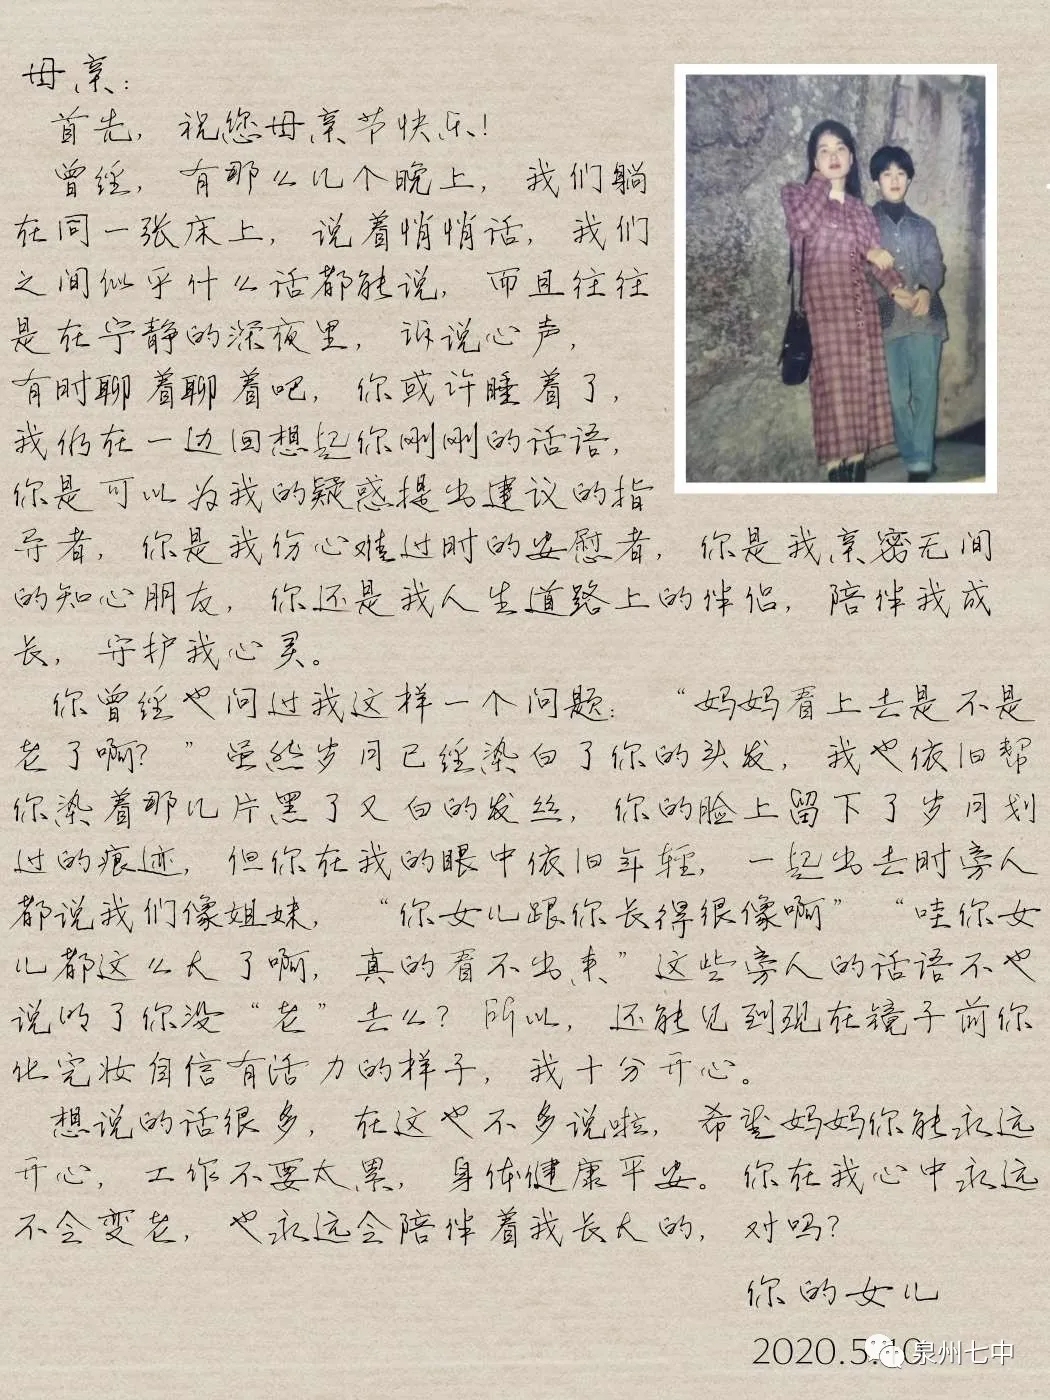 母亲：
首先，祝您母亲节快乐！
曾经，有那么几个晚上，我们躺
在同一张床上，说着悄悄话，我们
之间似乎什么话都能说，而且往往
是在宁静的深夜里，诉说心声，
有时聊着聊着吧，你或许睡着了，
我仍在一边回想起你刚刚的话语，
你是可以为我的疑惑提出建议的指
导者，你是我伤心难过时的安慰者，你是我亲密无间
的知心朋友，你还是我人生道路上的伴侣，陪伴我成
长，守护我心灵。
你曾经也问过我这样一个问题：“妈妈看上去是不是
老了啊？”虽然岁月已经染白了你的头发，我也依旧帮
你染着那几片黑了又白的发丝，你的脸上留下了岁月划
过的痕迹，但你在我的眼中依旧年轻，一起出去时旁人
都说我们像姐妹，“你女儿跟你长得很像啊”“哇你女
儿都这么大了啊，真的看不出来”这些旁人的话语不也
说明了你没“老”去么？所以，还能见到现在镜子前你
化完妆自信有活力的样子，我十分开心。
想说的话很多，在这也不多说啦，希望妈妈你能永远
开心，工作不要太累，身体健康平安。你在我心中永远
不会变老，也永远会陪伴着我长大的，对吗？
你的女儿
2020.5.10
泉州七中